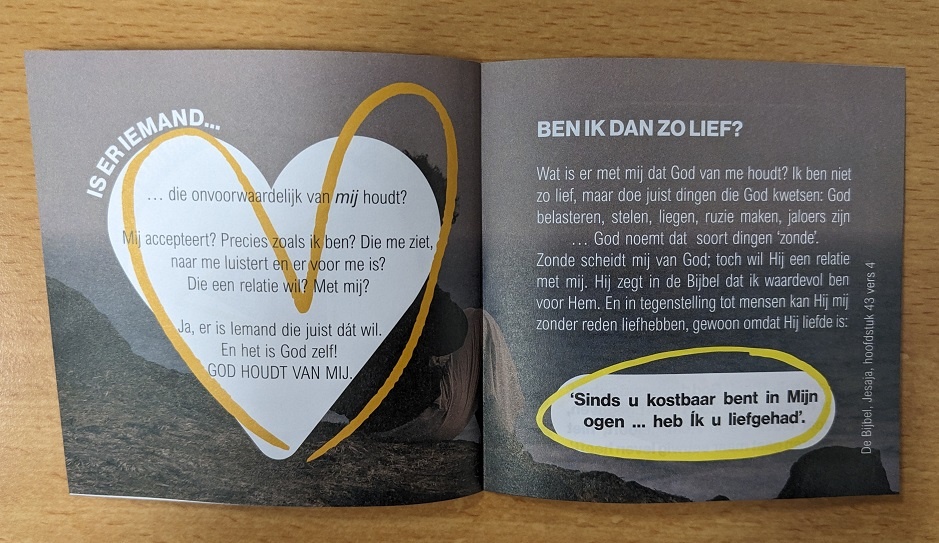 IS ER IEMAND...
... die onvoorwaardelijk van mij houdt?
Mij accepteert? Precies zoals ik ben? Die me ziet,
naar me luistert en er voor me is?
Die een relatie wil? Met mij?
Ja, er is Iemand die juist dát wil.
En het is God zelf!
GOD HOUDT VAN MIJ.
BEN IK DAN ZO LIEF?
Wat is er met mij dat God van me houdt? Ik ben niet
zo lief, maar doe juist dingen die God kwetsen: God
belasteren, stelen, liegen, ruzie maken, jaloers zijn
... God noemt dat soort dingen ‘zonde’.
Zonde scheidt mij van God; toch wil Hij een relatie
met mij. Hij zegt in de Bijbel dat ik waardevol ben
voor Hem. En in tegenstelling tot mensen kan Hij mij
zonder reden liefhebben, gewoon omdat Hij liefde is:
‘Sinds u kostbaar bent in Mijn
ogen ... heb Ík u liefgehad’.
De Bijbel, Jesaja, hoofdstuk 43 vers 4